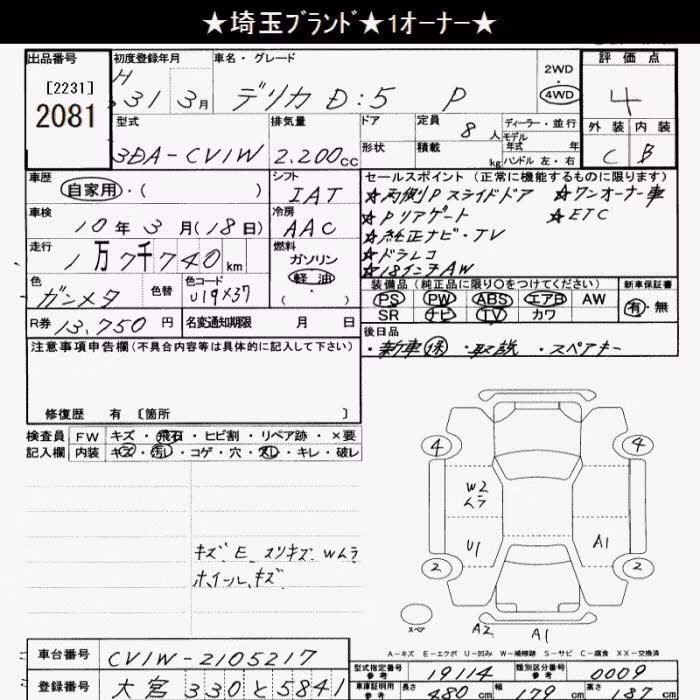 ★埼玉ブランド★1オーナー★
出品番号 初度登録年月 車名・グレード 2WD 評価点
[2231] H 31 3月 デリカ D:5 P 4WD 4
2081
型式 排気量 ドア 定員 8人 ディーラー・並行 外装 内装
モデル年式 年
3DA-CV1W 2.200cc 形状 積載 kg ハンドル 左・右 C B
車歴 シフト セールスポイント (正常に機能するものに限ります)
自家用・( ) IAT ★両側Pスライドドア ★ワンオーナー車
車検 冷房 ★Pリアゲート ★ETC
10年3月(18日) AAC ★純正ナビ・TV
走行 燃料 ★ドラレコ
1万7千740km ガソリン ★18インチAW
色 色替 色コード 軽油 装備品 (純正品に限り○をつけてください) 新車保証書
ガンメタ U19X37 ( ・ ) PS PW ABS エアB AW 有・無
SR ナビ TV カワ
R券 13,750円 名変通知期限 月 日 後日品
注意事項申告欄(不具合内容等は具体的に記入して下さい) ・新車保 ・取説 ・スペアキー
修復歴 有 [箇所 ]
検査員 FW キズ・飛石・ヒビ割・リペア跡・×要
記入欄 内装 キズ・汚レ・コゲ・穴・スレ・キレ・破レ
4 4
W2
ムラ
U1 A1
キズ E スリキズ Wムラ
ホイールキズ
2 2
スペア A2 A1
A-キズ E-エクボ U-凹み W-補修跡 S-サビ C-腐食 XX-交換済
車台番号 CV1W-2105217 型式指定番号 参考 19114 類別区分番号 参考 0009
登録番号 大宮 330 と 5841 車庫証明用 参考 長さ 480cm 幅 179cm 高さ 187